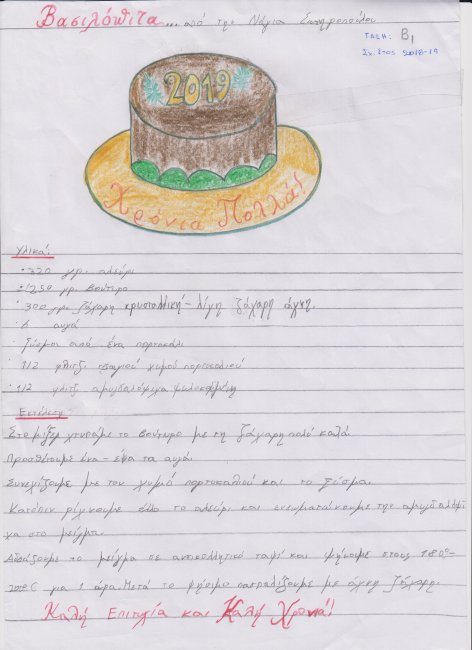 Βασιλόπιτα... από την Νάγια Σωτηροπούλου
ΤΑΞΗ: Β1
Σχ. Έτος 2018-19
2019
Χρόνια Πολλά!
Υλικά:
· 320 γρ. αλεύρι
· 250 γρ. βούτυρο
· 300 γρ. ζάχαρη κρυσταλλική - λίγη ζάχαρη άχνη.
· 6 αυγά
· ξύσμα από ένα πορτοκάλι
· 1/2 φλιτζ. χυμού πορτοκαλιού
· 1/2 φλιτζ αμυγδαλόψιχα
Εκτέλεση:
Στο μίξερ χτυπάμε το βούτυρο με τη ζάχαρη πολύ καλά.
Προσθέτουμε ένα - ένα τα αυγά.
Συνεχίζουμε με τον χυμό πορτοκαλιού και το ξύσμα.
Κατόπιν ρίχνουμε όλο το αλεύρι και ενσωματώνουμε την αμυγδαλόψι
χα στο μείγμα.
Αδειάζουμε το μείγμα σε αντικολλητικό ταψί και ψήνουμε στους 180°-
200°C για 1 ώρα. Μετά το ψήσιμο πασπαλίζουμε με άχνη ζάχαρη.
Καλή Επιτυχία και Καλή Χρονιά!